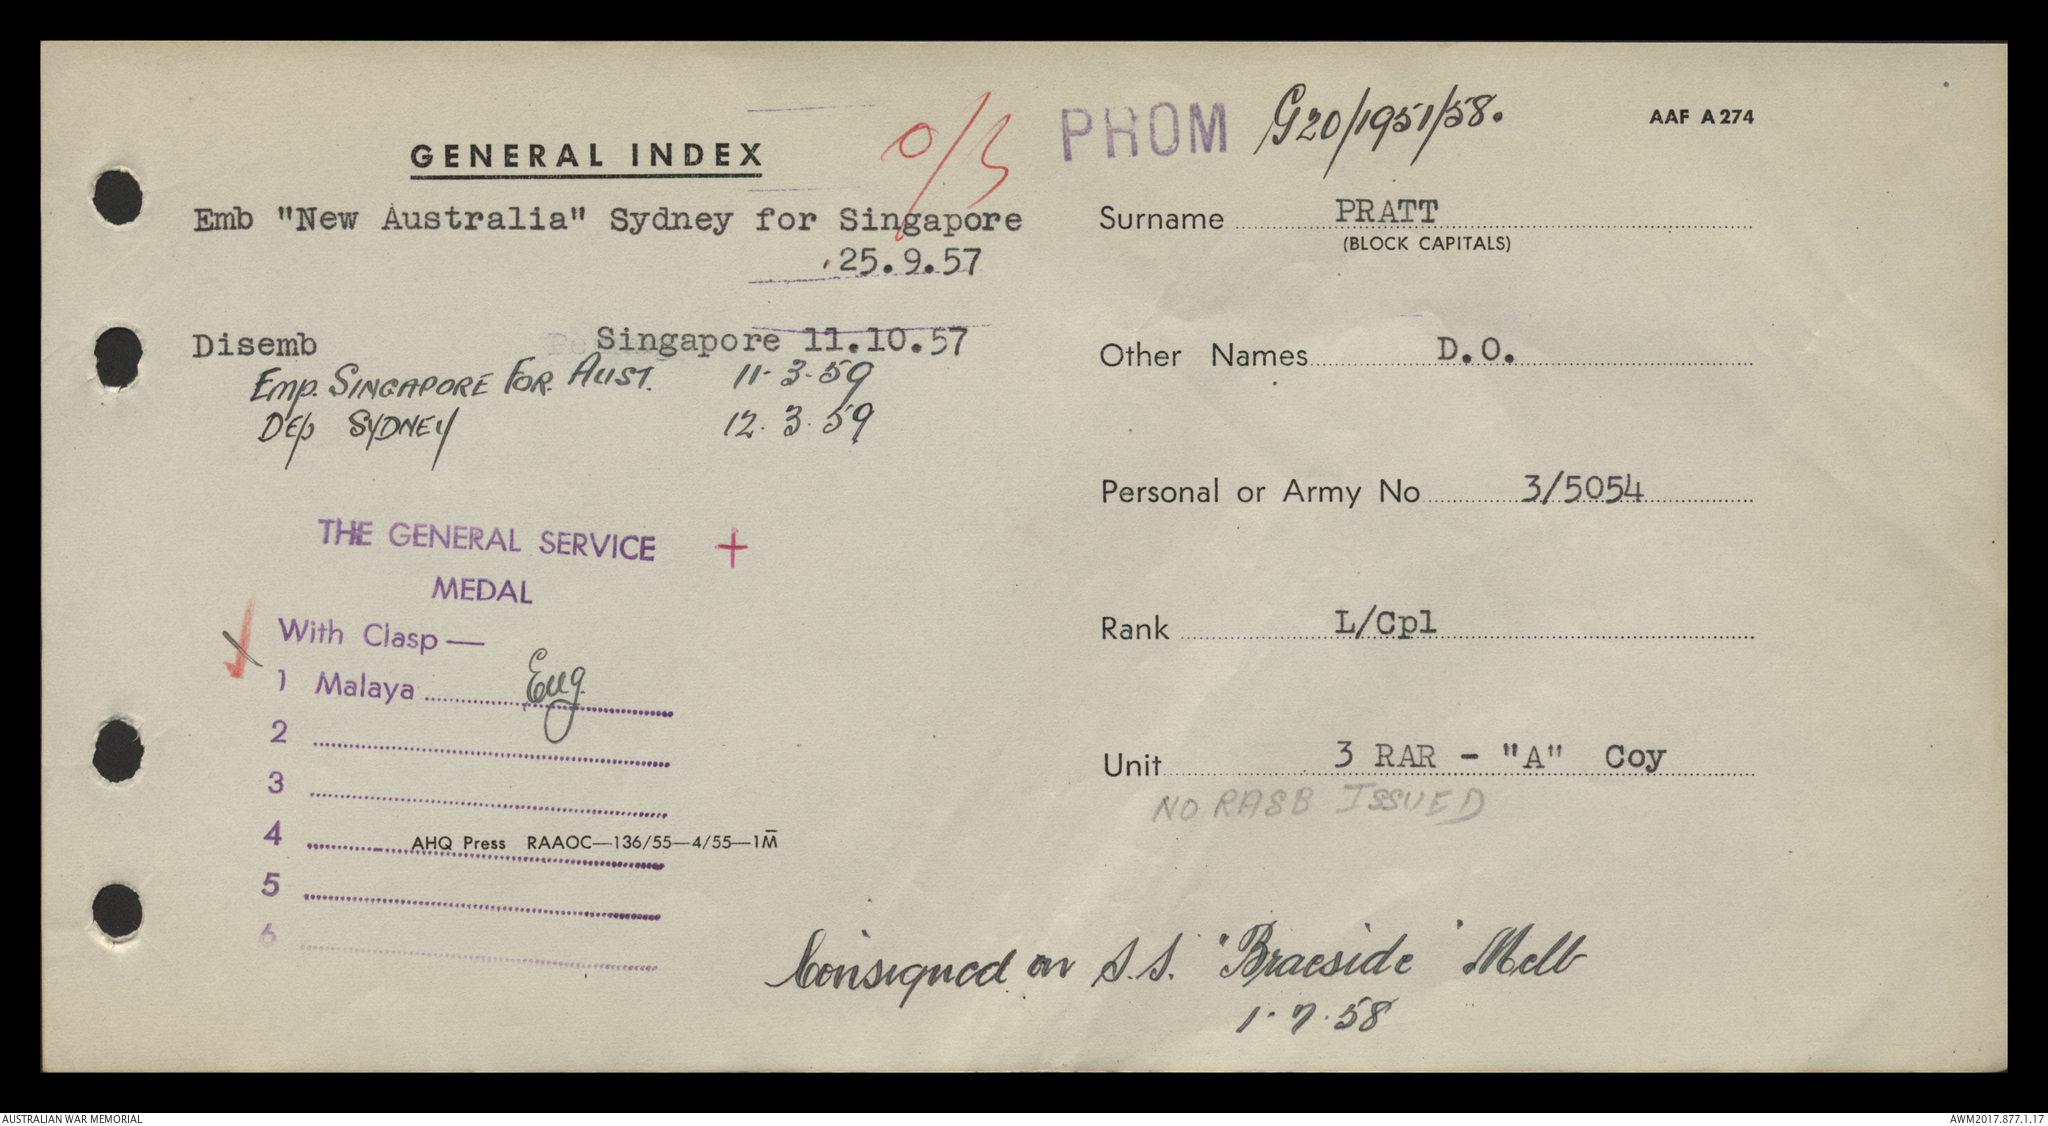 GENERAL INDEX
O/S
PROM
G20/1951/58.
AAF A274
Emb "New Australia" Sydney for Singapore
25.9.57
Disemb Singapore 11.10.57
Emp. SINGAPORE FOR. AUST. 11.3.59
Dep SYDNEY 12.3.59
THE GENERAL SERVICE
MEDAL
With Clasp—
1 Malaya Eug.
2
3
4
AHQ Press RAAOC—136/55—4/55—1M̅
5
6
Surname PRATT
(BLOCK CAPITALS)
Other Names D.O.
Personal or Army No 3/5054
Rank L/Cpl
Unit 3 RAR - "A" Coy
NO RASB ISSUED
Consigned on S.S. "Braeside" Melb
1.7.58
AUSTRALIAN WAR MEMORIAL
AWM2017.877.1.17